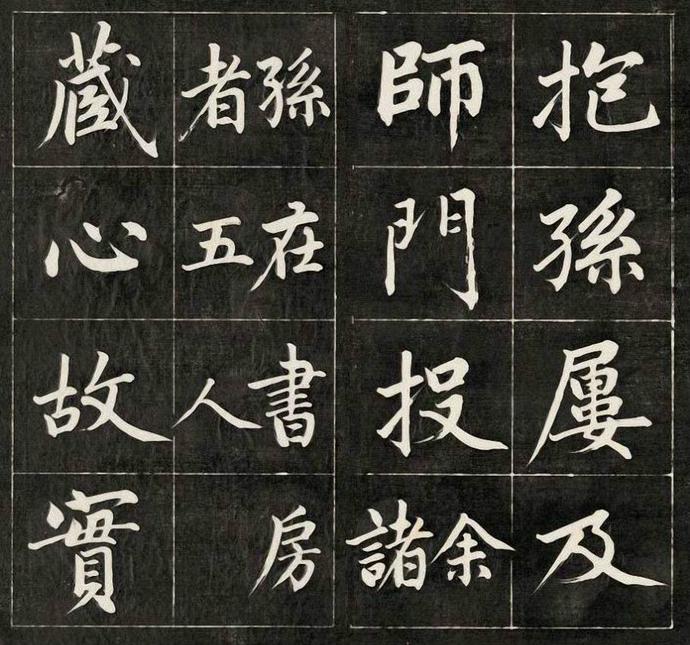 抱孫屢及
師門投
余
諸
孫在書房
者五人
藏心故實